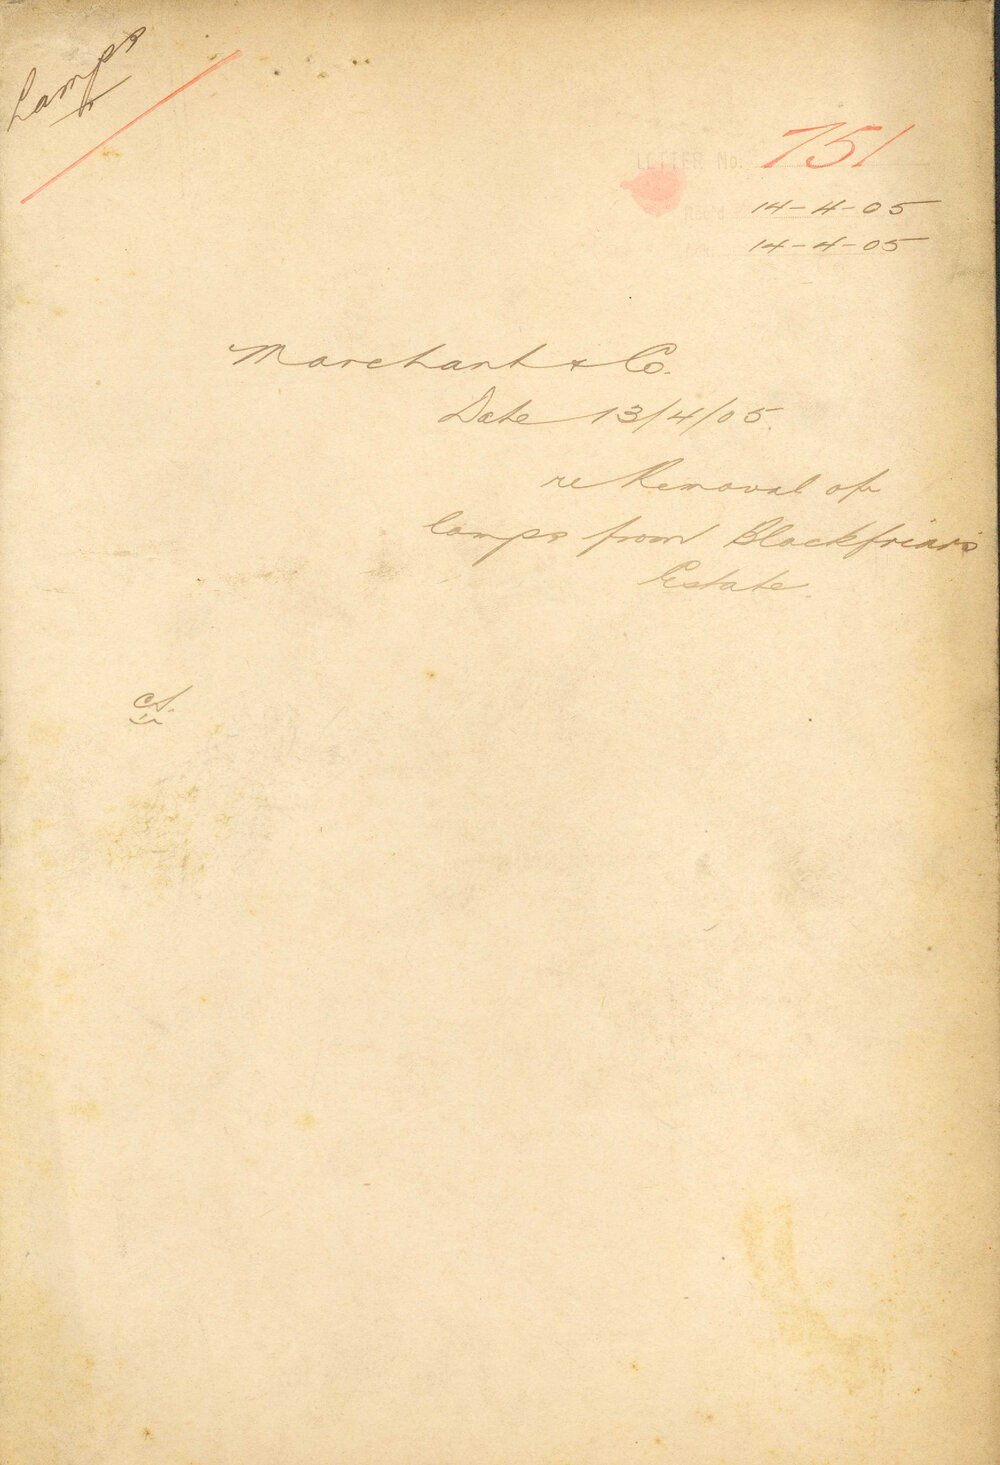 Lamps
LETTER No. 751
Rec'd 14-4-05
14-4-05
Marchant & Co.
Date 13/4/05.
re Removal of
lamps from Blackfriars
Estate.